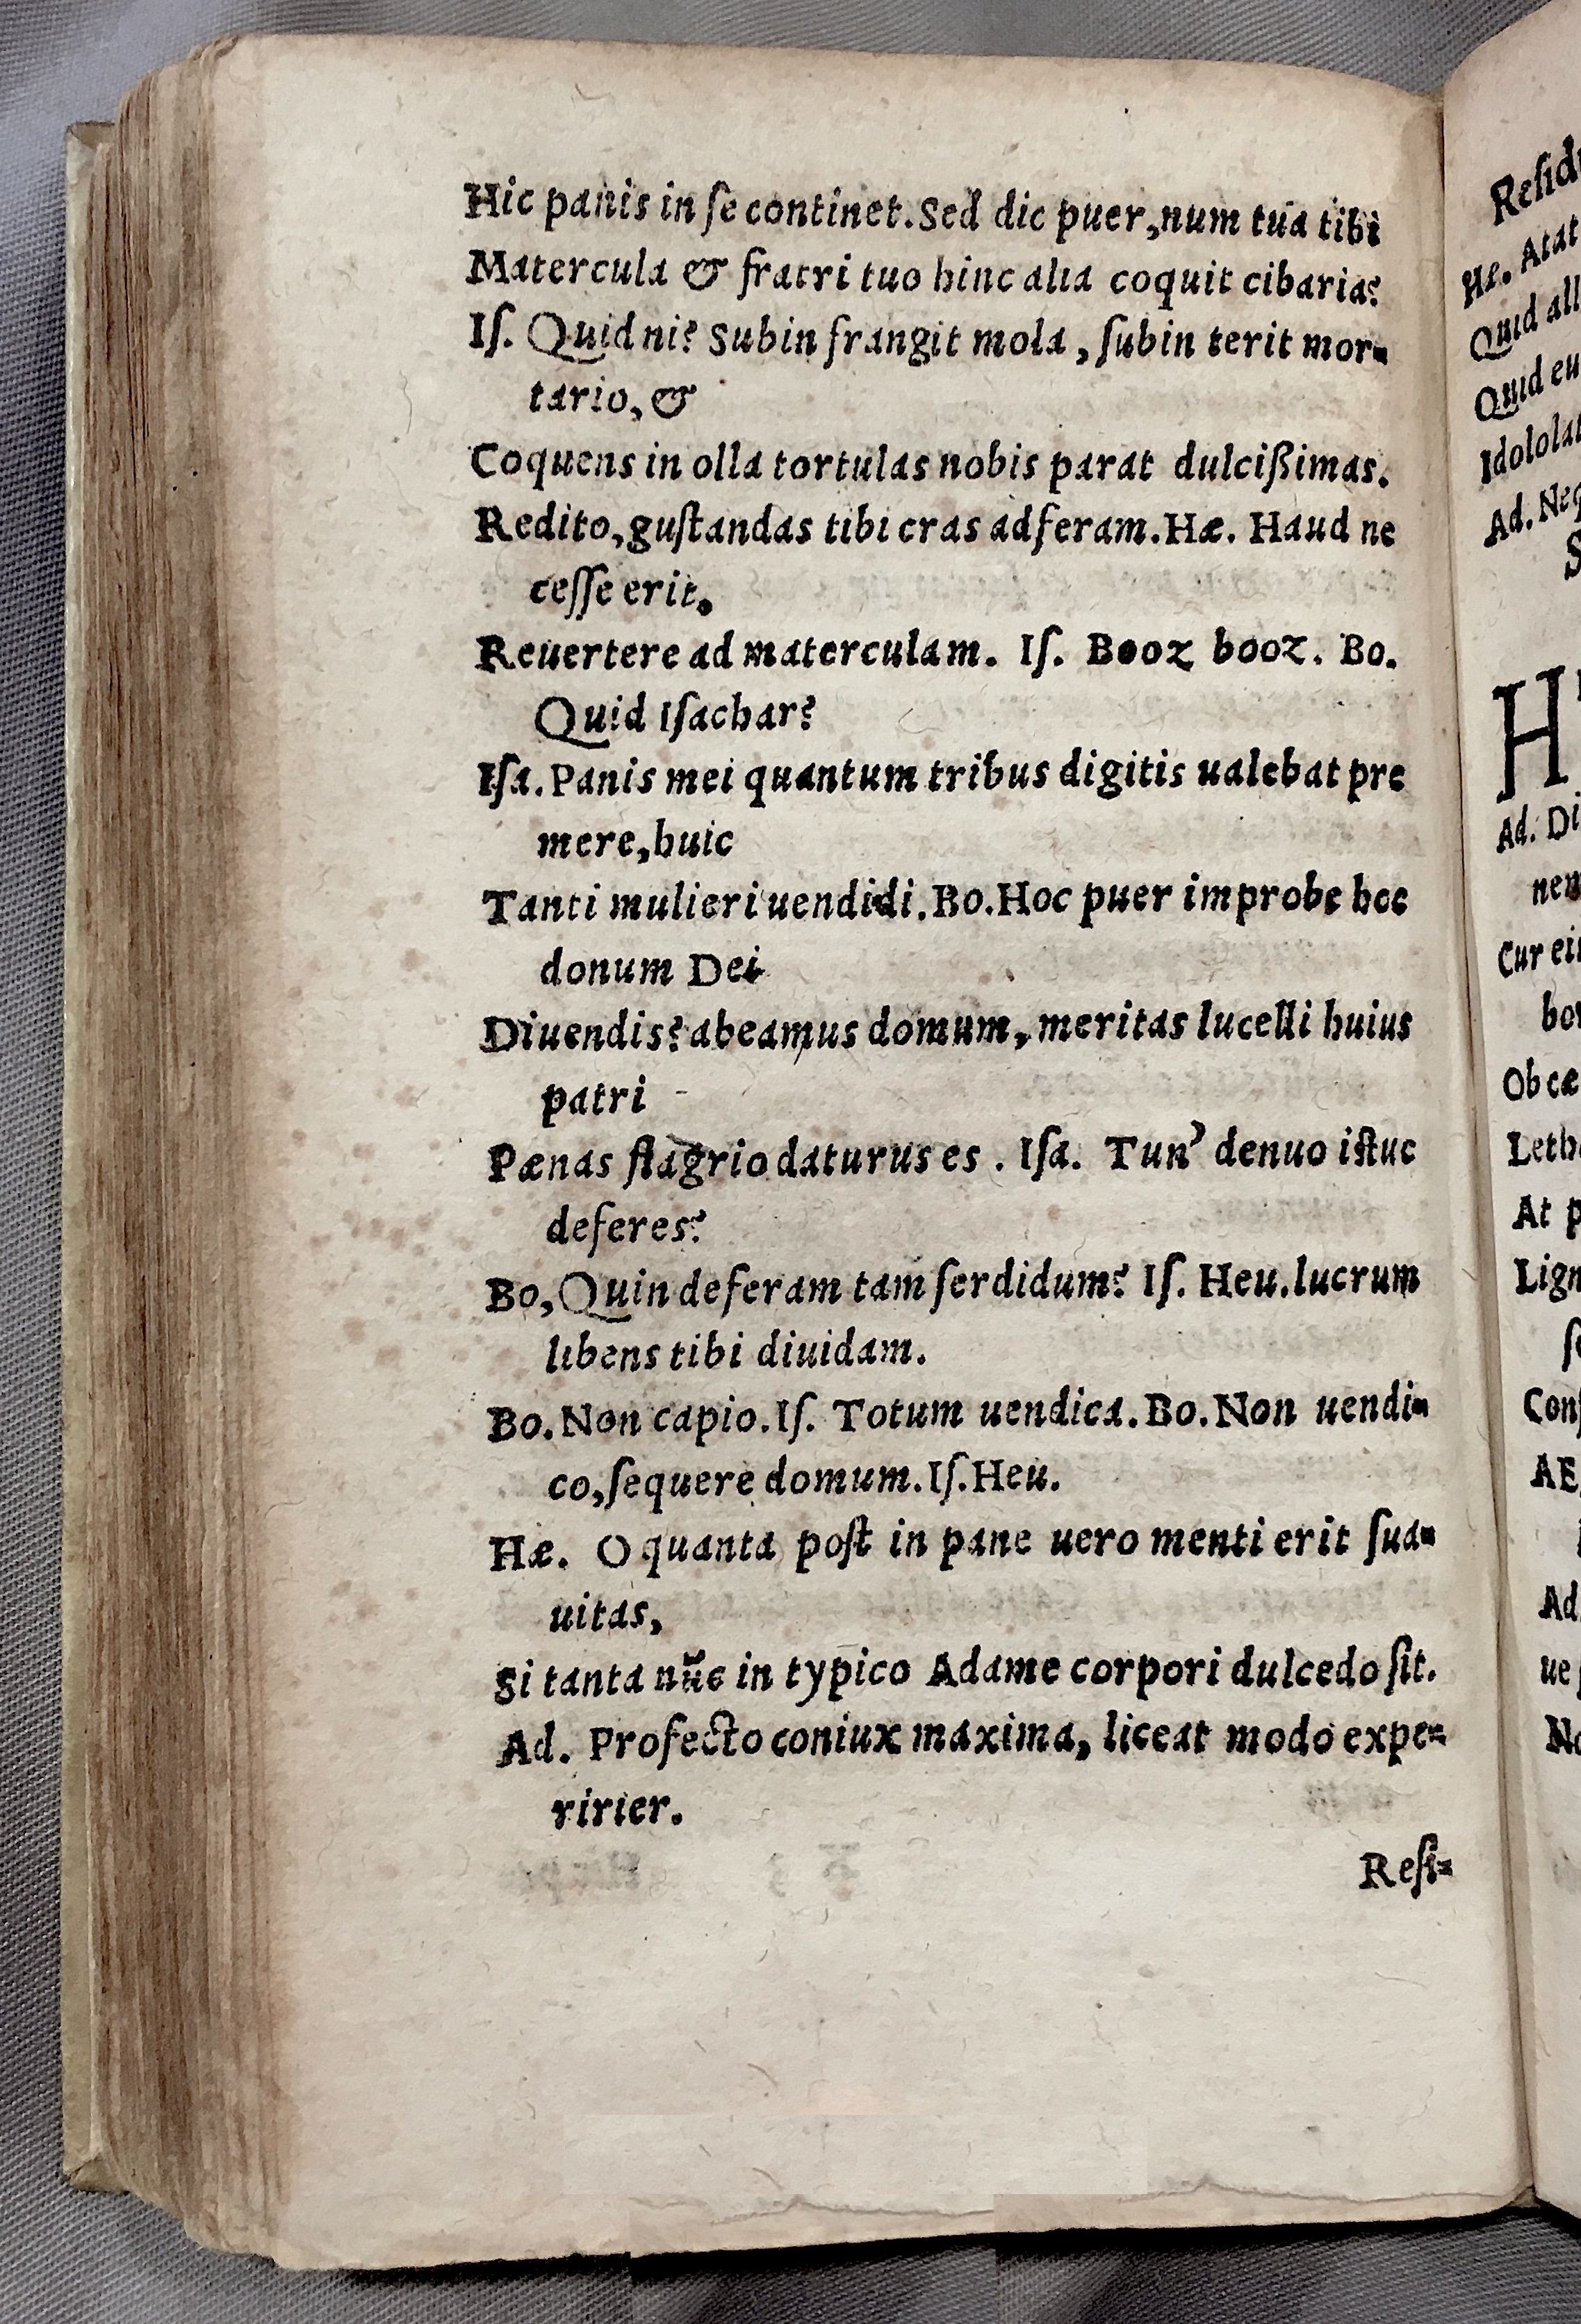 Hic panis in ſe continet. Sed dic puer, num tua tibi
Matercula & fratri tuo hinc alia coquit cibaria?
Iſ. Quid ni? Subin frangit mola, ſubin terit mor-
tario, &
Coquens in olla tortulas nobis parat dulcißimas.
Redito, guſtandas tibi cras adferam. Hæ. Haud ne
ceſſe erit.
Reuertere ad materculam. Iſ. Booz booz. Bo.
Quid Iſachar?
Iſa. Panis mei quantum tribus digitis ualebat pre
mere, huic
Tanti mulieri uendidi. Bo. Hoc puer improbe hoc
donum Dei
Diuendis? abeamus domum, meritas lucelli huius
patri
Pænas flagrio daturus es. Iſa. Tun' denuo iſtuc
deferes?
Bo, Quin deferam tam ſerdidum? Iſ. Heu. lucrum
libens tibi diuidam.
Bo. Non capio. Iſ. Totum uendica. Bo. Non uendi-
co, ſequere domum. Iſ. Heu.
Hæ. O quanta poſt in pane uero menti erit ſua-
uitas,
Si tanta nūc in typico Adame corpori dulcedo ſit.
Ad. Profecto coniux maxima, liceat modo expe-
ririer.
Reſi-
Reſid
Hæ. Atat
Quid all
Quid eu
Idololat
Ad. Neq
S
H
Ad. Di
nem
Cur ei
bo
Ob cæ
Leth
At p
Lign
ſe
Conſ
AE
Ad
ue
No